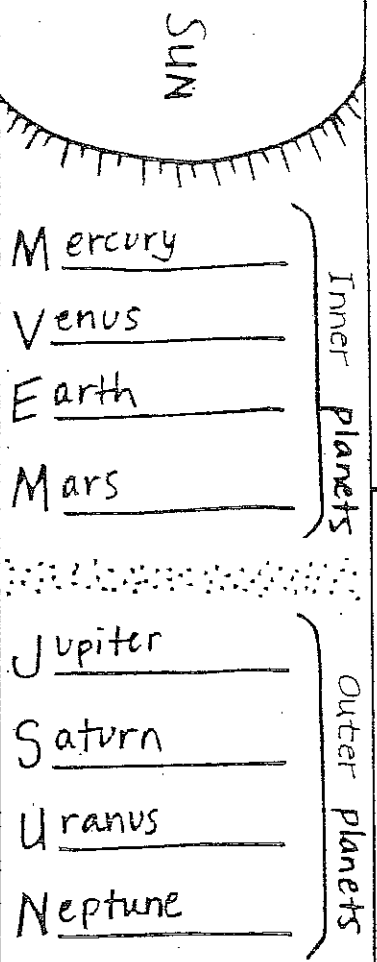 SUN
Mercury
Venus
Earth
Mars
Inner planets
Jupiter
Saturn
Uranus
Neptune
Outer planets